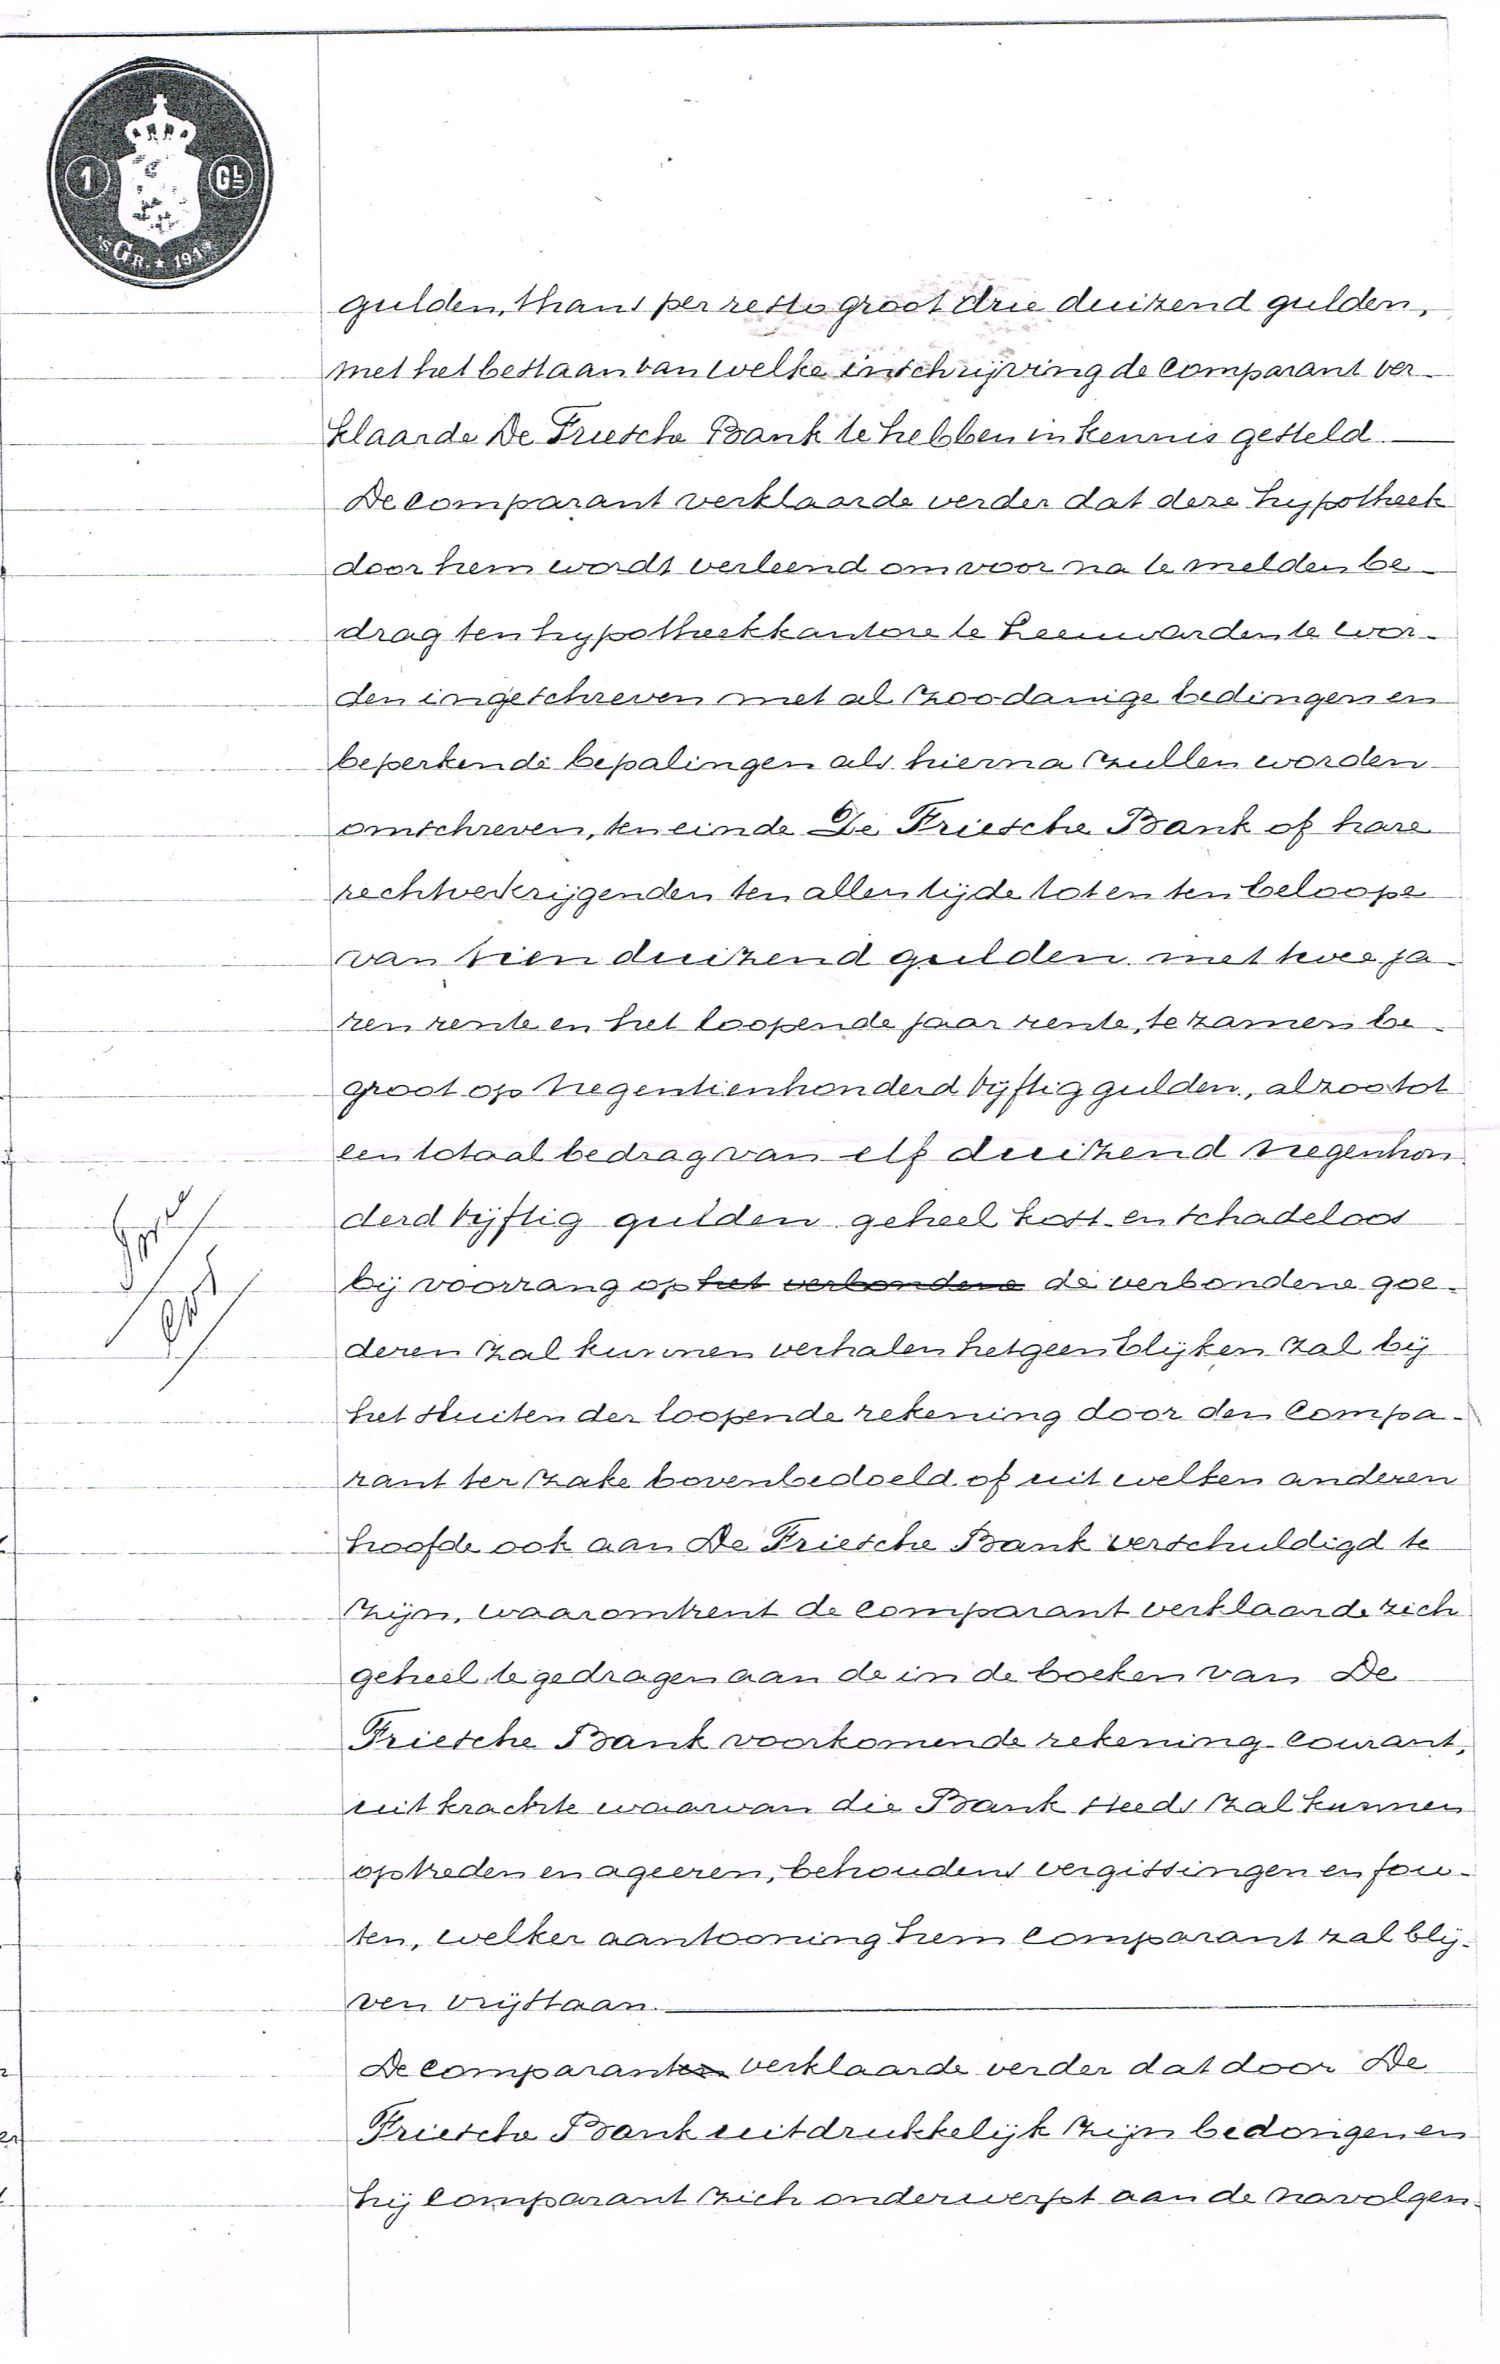 1 GL
'S GR. ★ 191
gulden, thans per resto groot drie duizend gulden,
met het bestaan van welke inschrijving de comparant ver-
klaarde De Friesche Bank te hebben in kennis gesteld
De comparant verklaarde verder dat deze hypotheek
door hem wordt verleend om voor na te melden be-
drag ten hypotheekkantore te Leeuwarden te wor-
den ingeschreven met al zoodanige bedingen en
beperkende bepalingen als hierna zullen worden
omschreven, ten einde De Friesche Bank of hare
rechtverkrijgenden ten allen tijde tot en ten beloope
van tien duizend gulden met twee ja-
ren rente en het loopende jaar rente, te zamen be-
groot op negentienhonderd vijftig gulden, alzoo tot
een totaal bedrag van elf duizend negenhon
derd vijftig gulden geheel kost- en schadeloos
bij voorrang op het verbondene de verbondene goe-
deren zal kunnen verhalen hetgeen blijken zal bij
het sluiten der loopende rekening door den compa-
rant ter zake bovenbedoeld of uit welken anderen
hoofde ook aan De Friesche Bank verschuldigd te
zijn, waaromtrent de comparant verklaarde zich
geheel te gedragen aan de in de boeken van De
Friesche Bank voorkomende rekening-courant,
uit krachte waarvan die Bank steeds zal kunnen
optreden en ageeren, behoudens vergissingen en fou-
ten, welker aantooning hem comparant zal blij-
ven vrijstaan.
De comparanten verklaarde verder dat door De
Friesche Bank uitdrukkelijk zijn bedongen en
hij comparant zich onderwerpt aan de navolgen-